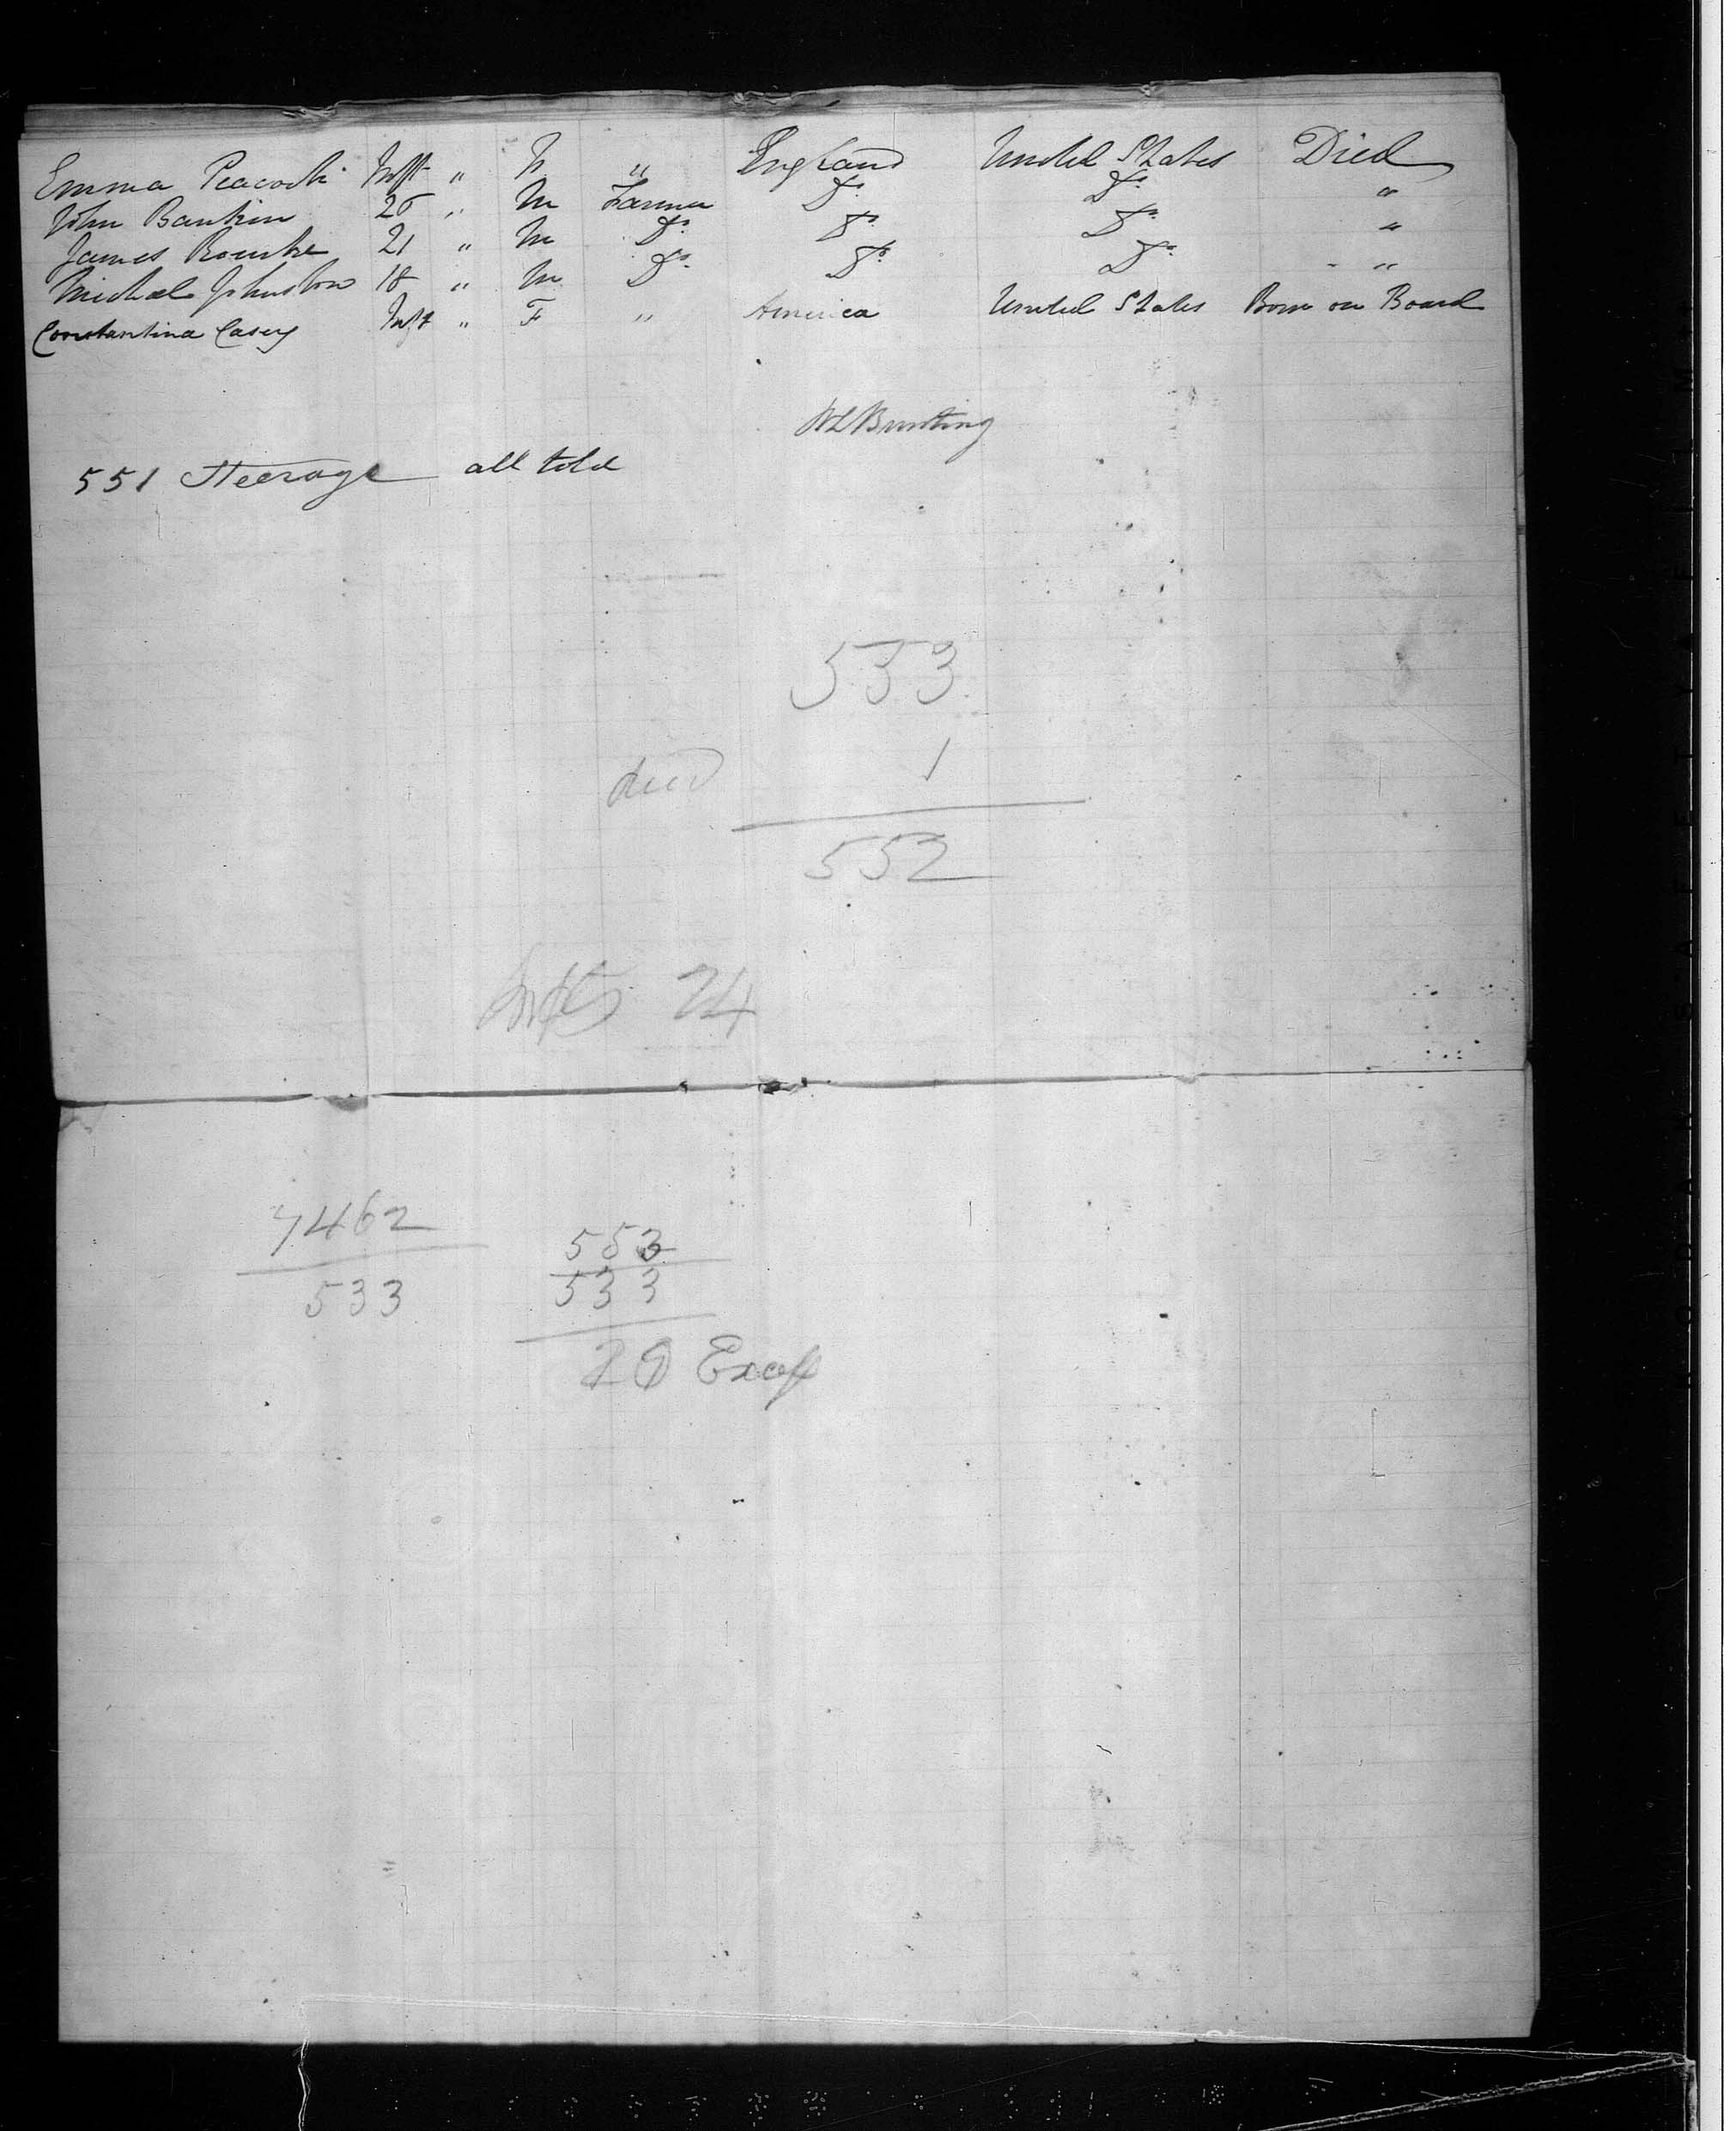 Emma Peacock Inft " " England United States Died
John Bankin 25 " M Farmer Do. Do. "
James Rourke 21 " M Do. Do. Do. "
Michael Johnston 18 " M Do. Do. Do. "
Constantina Casey Inft " F " America United States Born on Board
WL Bunting
551 Steerage all told
553
died 1
552
Infts 24
7462
533
553
533
20 Excess